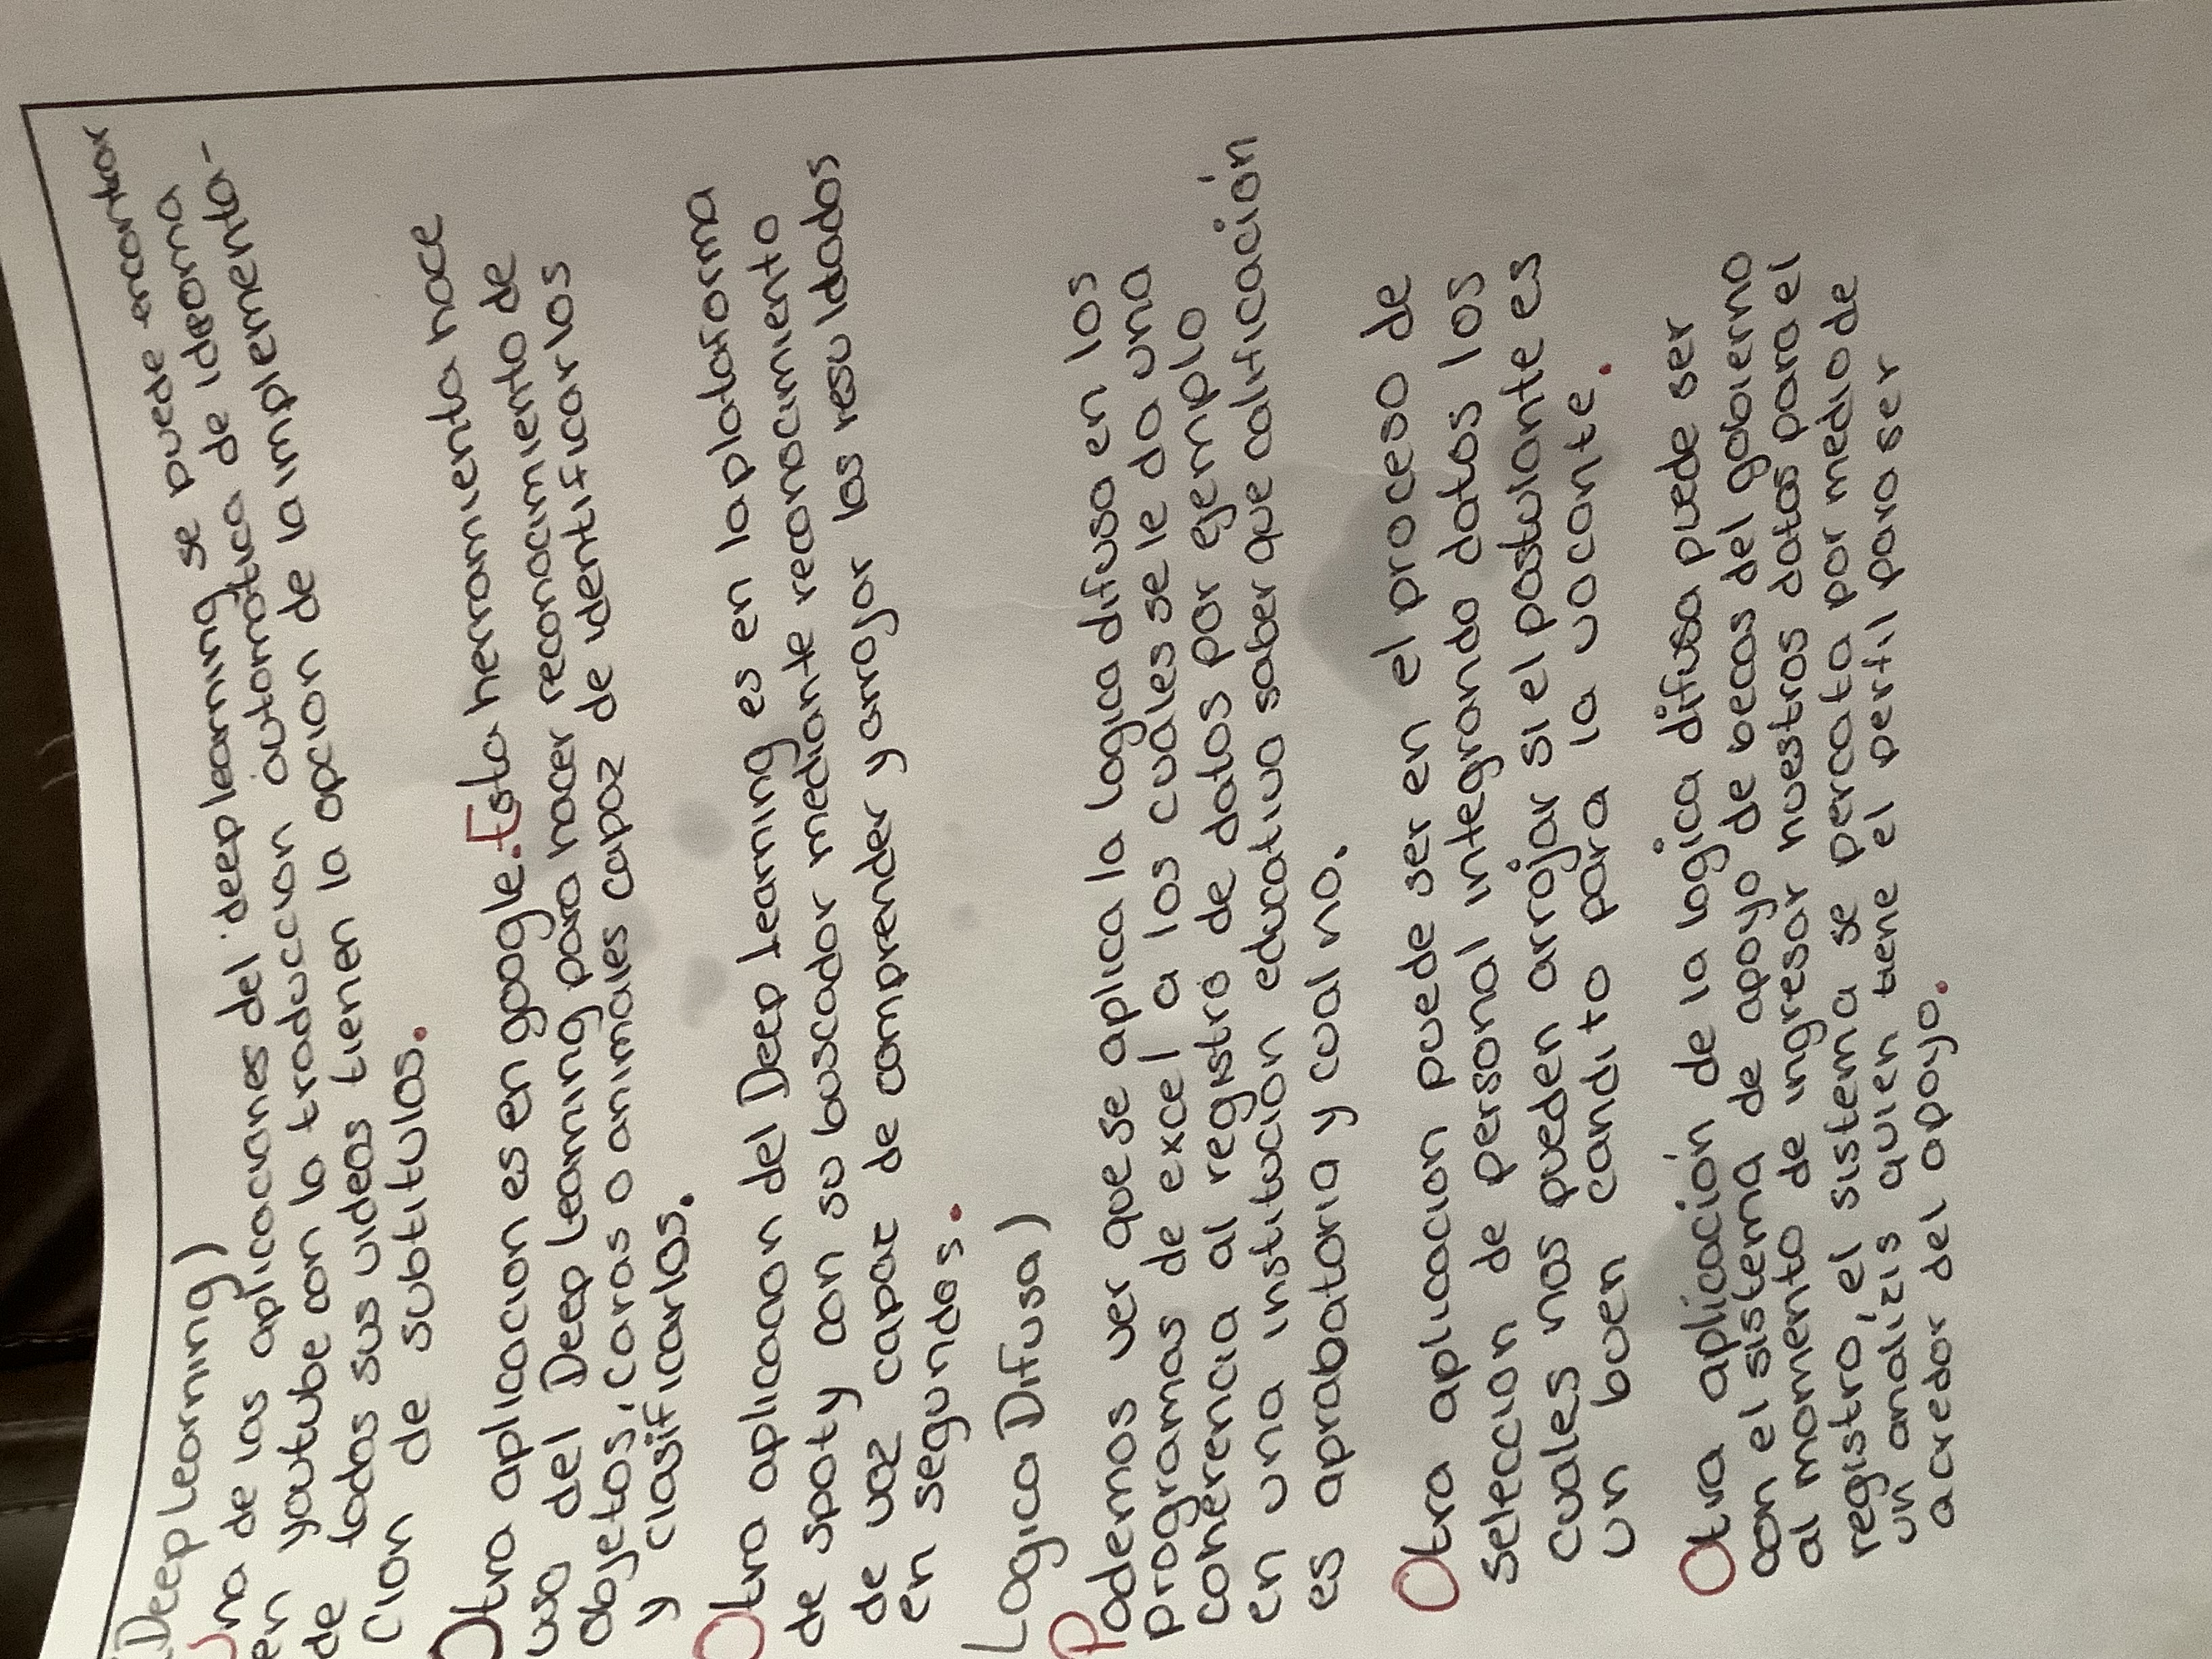 (Deep Learning)
Una de las aplicaciones del deep learning se puede encontrar
en youtube con la traduccion automática de idioma
de todos sus videos tienen la opcion de la implementa-
cion de subtitulos.
Otra aplicacion es en google. Esta herramienta hace
uso del Deep Learning para hacer reconocimiento de
objetos, caras o animales capaz de identificarlos
y clasificarlos.
Otra aplicacion del Deep Learning es en la plataforma
de spoty con su buscador mediante reconocimiento
de voz capaz de comprender y arrojar los resultados
en segundos.
Logica Difusa)
Podemos ver que se aplica la logica difusa en los
programas de excel a los cuales se le da una
coherencia al registro de datos por ejemplo
en una institucion educativa saber que calificación
es aprabatoria y cual no.
Otra aplicacion puede ser en el proceso de
seleccion de personal integrando datos los
cuales nos pueden arrojar si el postulante es
un buen candito para la vacante.
Otra aplicación de la logica difusa puede ser
con el sistema de apoyo de becas del gobierno
al momento de ingresar nuestros datos para el
registro, el sistema se percata por medio de
un analizis quien tiene el perfil para ser
acredor del apoyo.